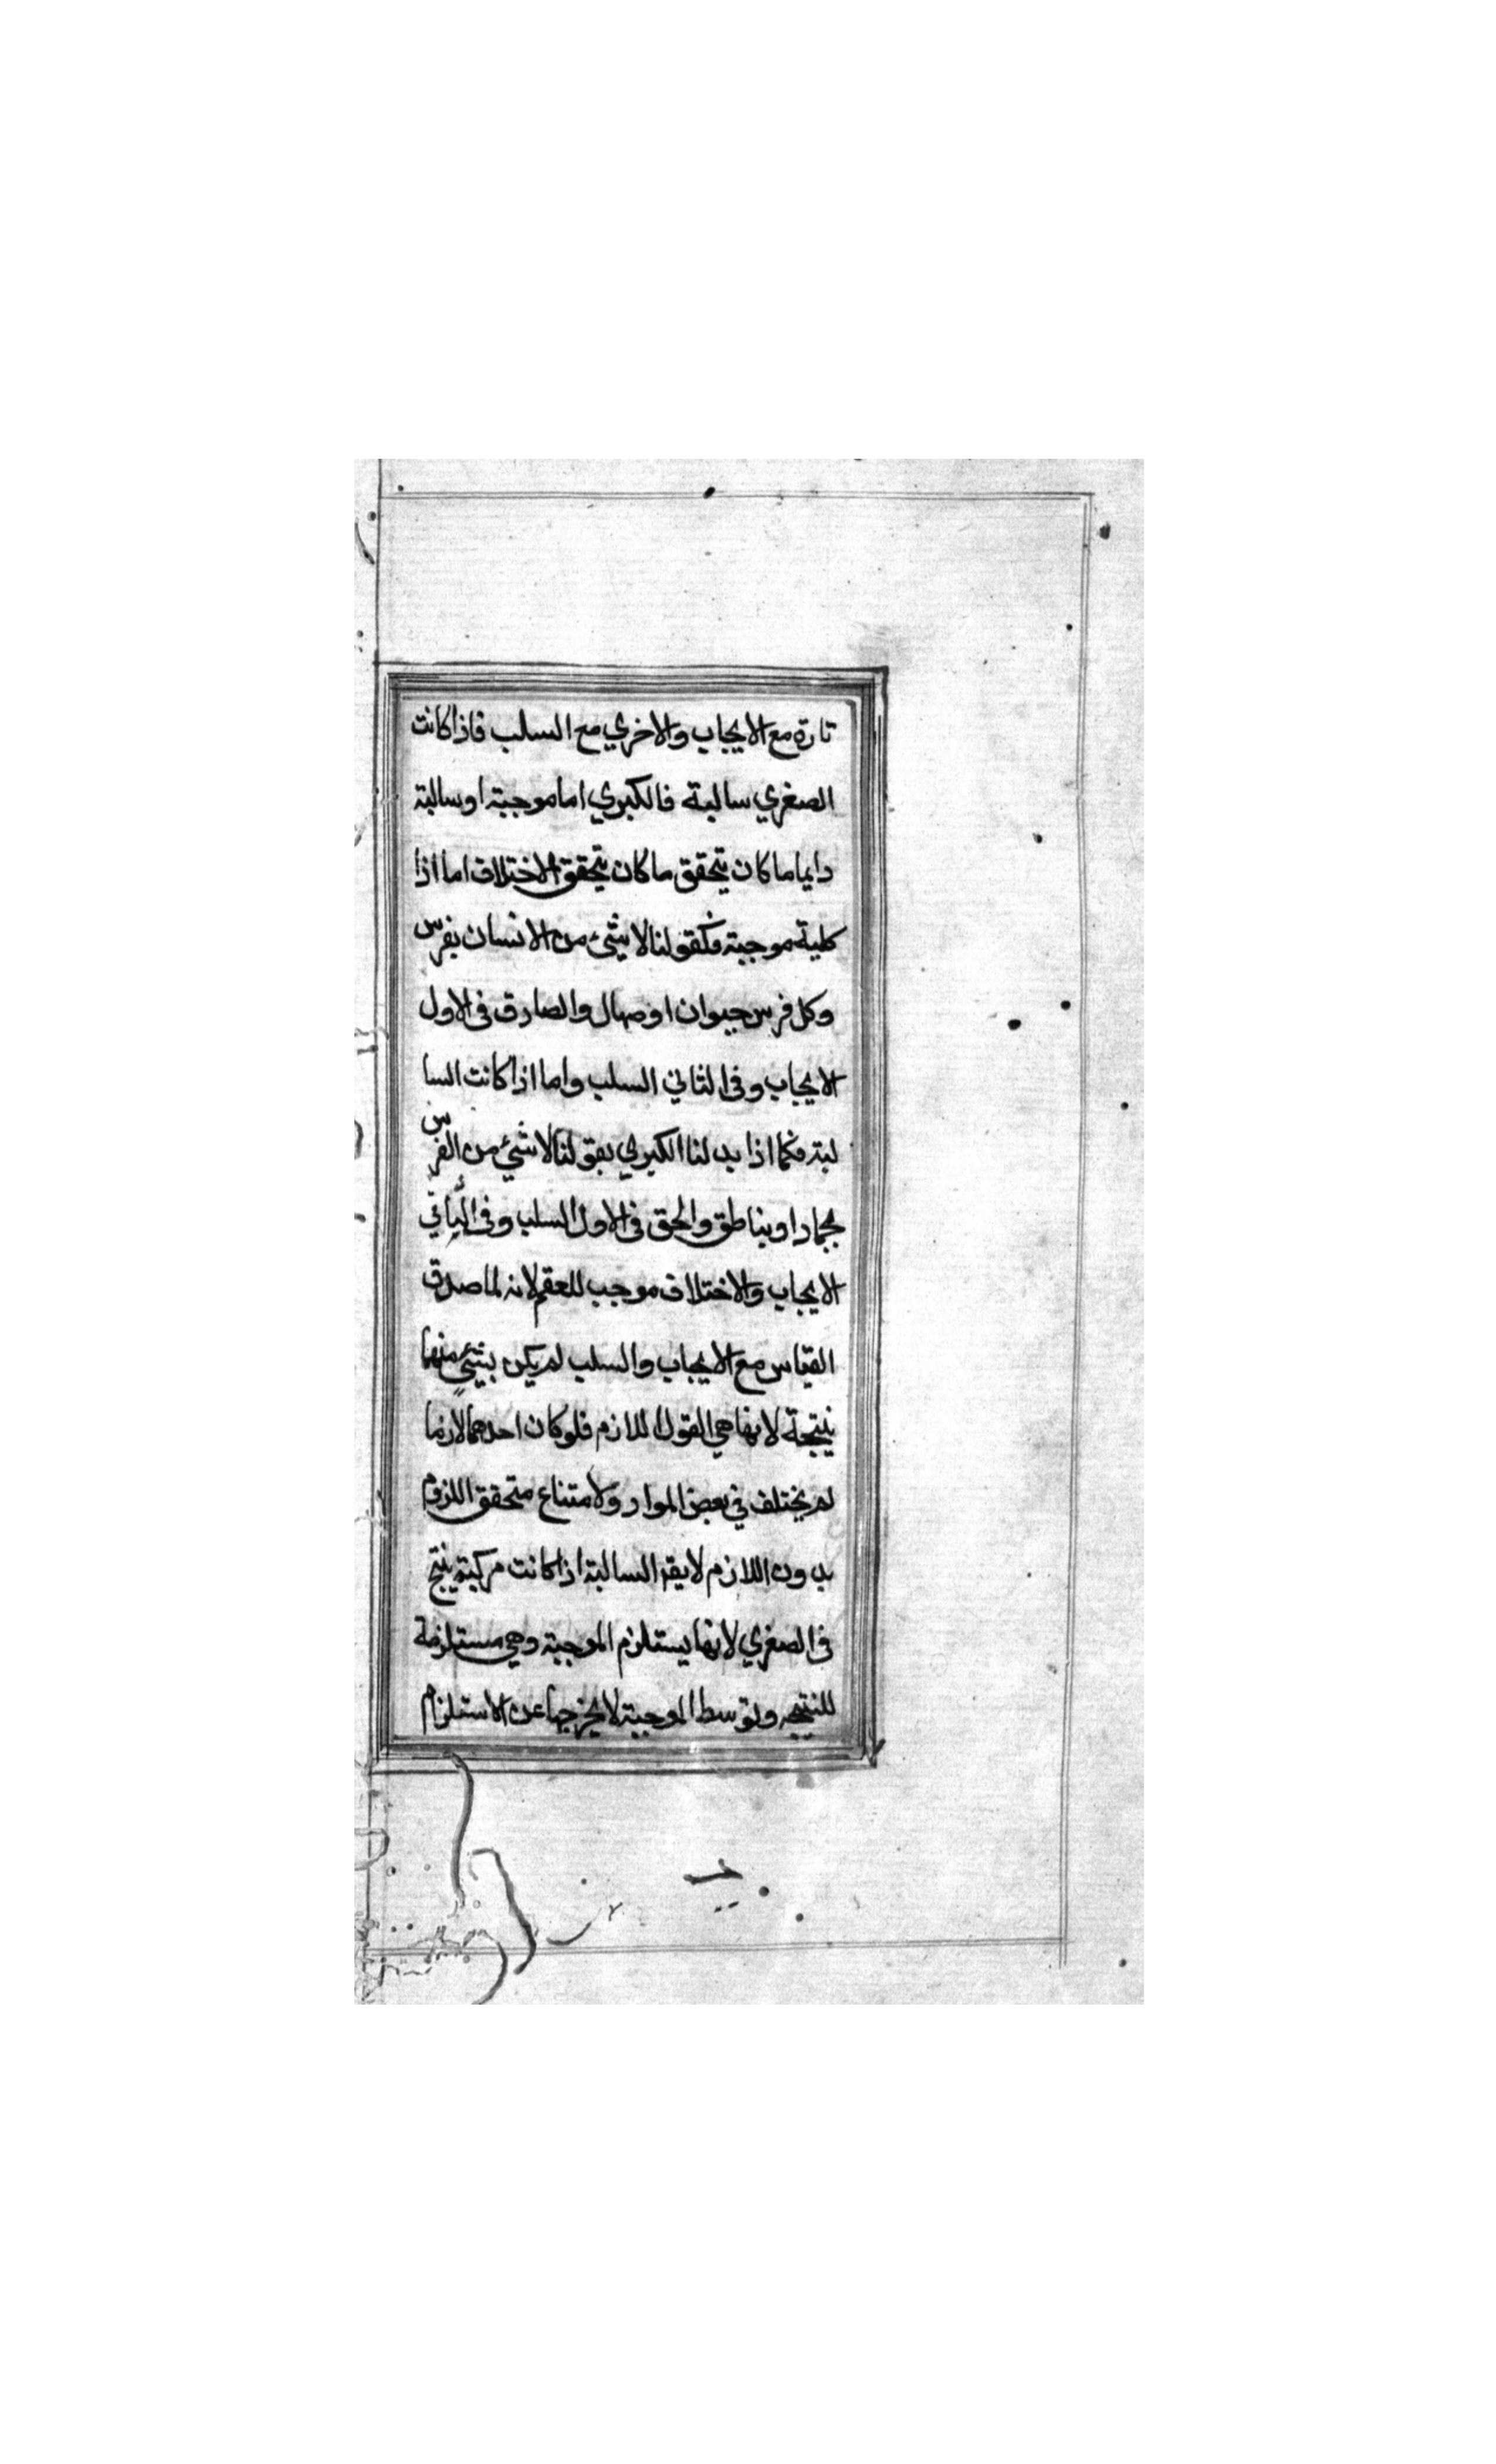 تارة مع الايجاب والاخري مع السلب فاذا كانت
الصغري سالبة فالكبري اما موجبة او سالبة
دايما ما كان يتحقق ما كان يتحقق الاختلاف اما اذا
كلية موجبة فكقولنا لا شئ من الانسان بفرس
وكل فرس حيوان او صهال والصادق فى الاول
الايجاب وفى الثاني السلب واما اذا كانت السا
لبة فكما اذا بدلنا الكبري بقولنا لا شئ من الفرس
بجماد او بناطق والحق فى الاول السلب وفى الثاني
الايجاب والاختلاف موجب للعقم لانه لما صدق
القياس مع الايجاب والسلب لم يكن بشئ منهما
نتيجة لانها هي القول اللازم فلو كان احدهما لازما
لم يختلف في بعض المواد ولامتناع متحقق اللزوم
بدون اللازم لا يقه السالبة اذا كانت مركبة ينتج
فى الصغري لانها يستلزم الموجبة وهي مستلزمة
للنتيجه وتوسط الموجبة لا يخرجها عن الاستلزام